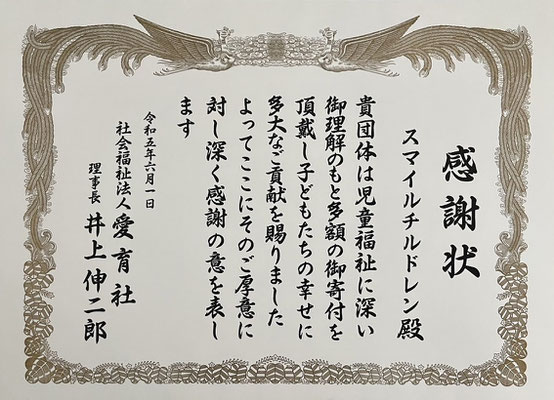 感謝状
スマイルチルドレン殿
貴団体は児童福祉に深い
御理解のもと多額の御寄付を
頂戴し子どもたちの幸せに
多大なご貢献を賜りました
よってここにそのご厚意に
対し深く感謝の意を表し
ます
令和五年六月一日
社会福祉法人 愛育社
理事長 井上伸二郎